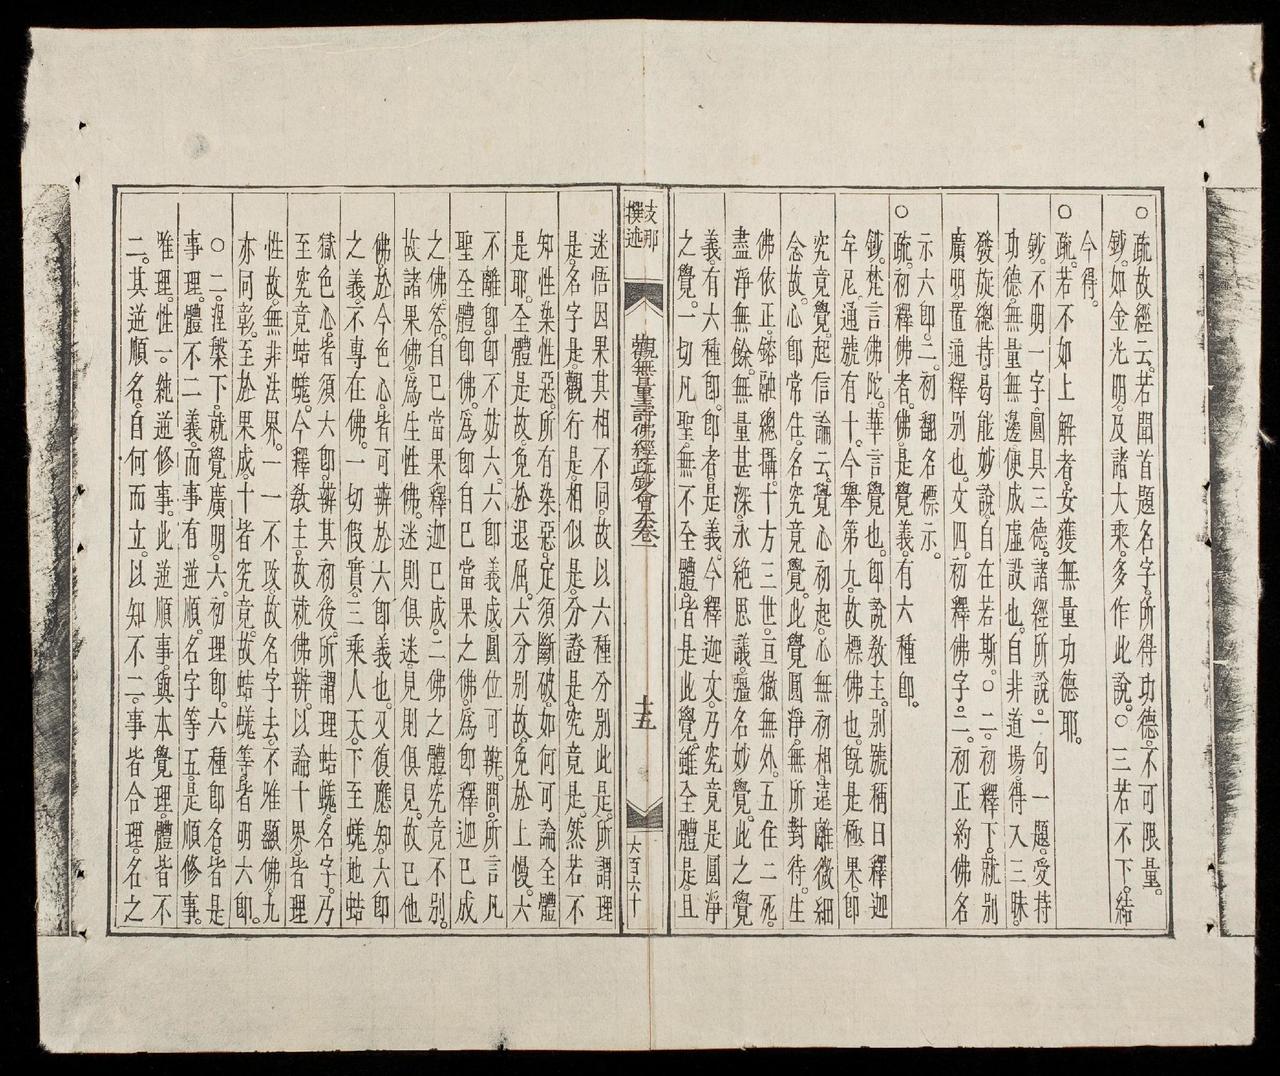 ○疏。故經云。若聞首題名字。所得功德。不可限量。
鈔。如金光明。及諸大乘。多作此說。○三若不下。結
今得。
○疏。若不如上解者。安獲無量功德耶。
鈔。不明一字。圓具三德。諸經所說。一句一題。受持
功德。無量無邊。便成虛設也。自非道場。得入三昧。
發旋總持。曷能妙說。自在若斯。○二。初釋下。就別
廣明。置通釋別也。文四。初釋佛字。二。初正約佛名
示六即。二。初翻名標示。
○疏。初釋佛者。佛是覺義。有六種即。
鈔。梵言佛陀。華言覺也。即說教主。別號稱曰釋迦
牟尼。通號有十。今舉第九。故標佛也。旣是極果。即
究竟覺。起信論云。覺心初起。心無初相。遠離微細
念故。心即常住。名究竟覺。此覺圓淨。無所對待。生
佛依正。鎔融總攝。十方三世。亘徹無外。五住二死。
盡淨無餘。無量甚深。永絕思議。彊名妙覺。此之覺
義。有六種即。即者。是義。今釋迦文。乃究竟是。圓淨
之覺。一切凡聖。無不全體。皆是此覺。雖全體是。且
支那
撰述
觀無量壽佛經疏鈔會本卷一
十五
六百六十
迷悟因果。其相不同。故以六種分別此是。所謂理
是。名字是。觀行是。相似是。分證是。究竟是。然若不
知性染性惡。所有染惡。定須斷破。如何可論全體
是耶。全體是故。免於退屈。六分別故。免於上慢。六
不離即。即不妨六。六即義成。圓位可辨。問。所言凡
聖全體即佛。爲即自已當果之佛。爲即釋迦已成
之佛。答。自已當果。釋迦已成。二佛之體。究竟不別。
故諸果佛。爲生性佛。迷則俱迷。見則俱見。故已他
佛。於今色心。皆可辨於六即義也。又復應知。六即
之義。不專在佛。一切假實。三乘人天。下至蟯地蛣
獄色心。皆須六即。辨其初後。所謂理蛣蟯。名字。乃
至究竟蛣蟯。今釋教主。故就佛辨。以論十界。皆理
性故。無非法界。一一不改。故名字去。不唯顯佛。九
亦同彰。至於果成。十皆究竟。故蛣蟯等。皆明六即。
○二。涅槃下。就覺廣明。六。初理即。六種即名。皆是
事理。體不二義。而事有逆順。名字等五。是順修事。
唯理。性一。純逆修事。此逆順事。與本覺理。體皆不
二。其逆順名。自何而立。以知不二。事皆合理。名之